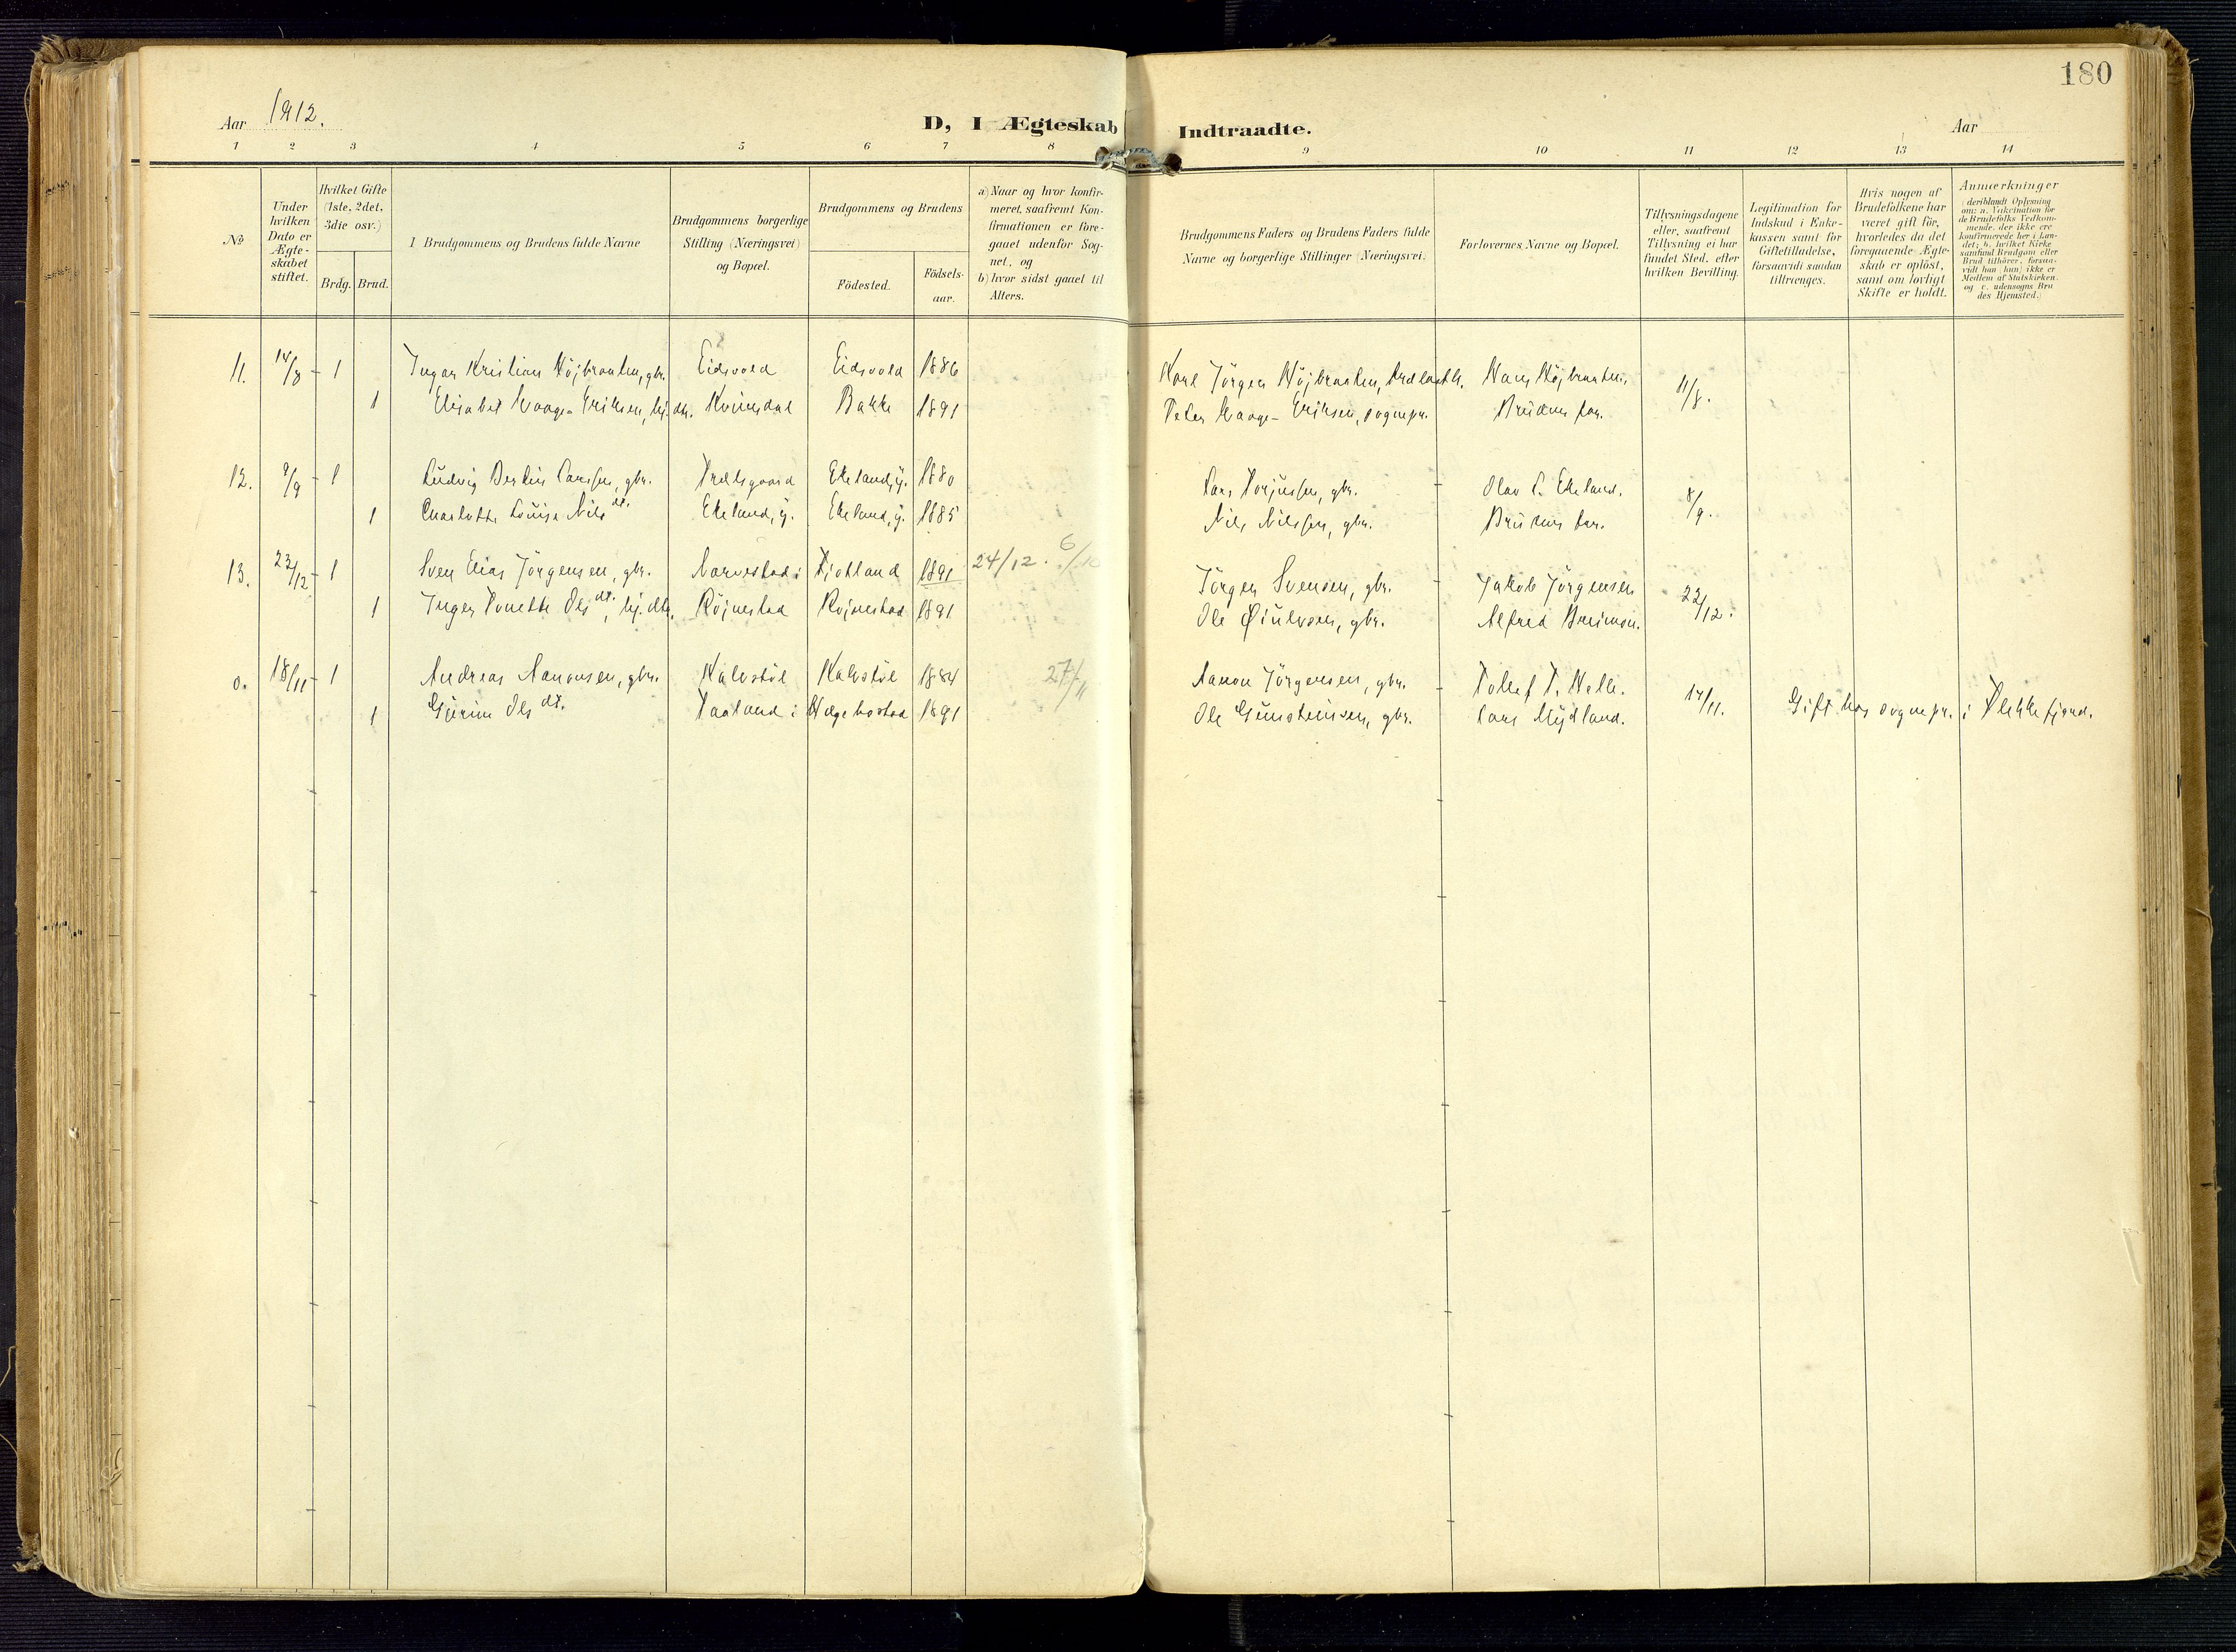 180
Aar 1912.
D, I Ægteskab Indtraadte.
Aar
1 2 3 4 5 6 7 8 9 10 11 12 13 14
No
Under hvilken Dato er Ægte-skabet stiftet.
Hvilket Gifte (1ste, 2det, 3die osv.)
Brdg. Brud.
Brudgommens og Brudens fulde Navne
Brudgommens borgerlige Stilling (Næringsvei) og Bopæl.
Brudgommens og Brudens
Födested.
Födsels-aar.
a) Naar og hvor konfir-meret, saafremt Kon-firmationen er fore-gaaet udenfor Sog-net, og
b) hvor sidst gaaet til Alters.
Brudgommens Faders og Brudens Faders fulde Navne og borgerlige Stillinger (Næringsvei).
Forlovernes Navne og Bopæl.
Tillysningsdagene eller, saafremt Tillysning ei har fundet Sted, efter hvilken Bevilling.
Legitimation for Indskud i Enke-kassen samt for Giftetilladelse, forsaavidt saadan tiltrænges.
Hvis nogen af Brudefolkene har været gift för, hvorledes da det foregaaende Ægte-skab er oplöst, samt om lovligt Skifte er holdt.
Anmærkninger (deriblandt Oplysning om: a. Vakcination for de Brudefolks Vedkom-mende, der ikke ere konfirmerede her i Lan-det; b. hvilket Kirke samfund Brudgom eller Brud tilhörer, forsaa-vidt han (hun) ikke er Medlem af Statskirken og c. udensogns Bru des Hjemsted.)
11. 14/8 1 Ingar Kristian Höjbraaten, gbr. Eidsvold Eidsvold 1886 Karl Jörgen Höjbraaten, Hans Höjbraaten, 11/8.
1 Elisabet Waage-Eriksen, hj. dtr. Kvinesdal Bakke 1891 Peter Waage-Eriksen, sognepr. Brudens far.
12. 9/9 1 Ludvig Larssen, gbr. Trælsgaard Ekeland, y. 1880 Lars gbr. Olav L. Ekeland. 8/9.
1 Charlotte Louise Nils dt. Ekeland, y. Ekeland, y. 1885 Nils Nilssen, gbr. Brudens far.
13. 23/12 1 Sven Elias Jörgensen, gbr. Narvestad i Fjotland 1891 24/12. 6/ Jörgen Svensen, gbr. Jakob Jörgensen 22/12.
1 Inger Tonette Ols dt., hj. dtr. Röjnestad Röjnestad 1891 Ole gbr. Alfred Breimon.
0. 18/11 1 Andreas Aanonsen, gbr. Kalvstöl Kalvstöl 1884 27/11 Aanon Jörgensen, gbr. Tollef T. Helle. 17/11. Gift hos sognepr. i Flekkefjord.
1 Gjurine Ols dt. Taaland i Hægebostad 1891 Ole Gunsteinsen, gbr. Lars Mydland.